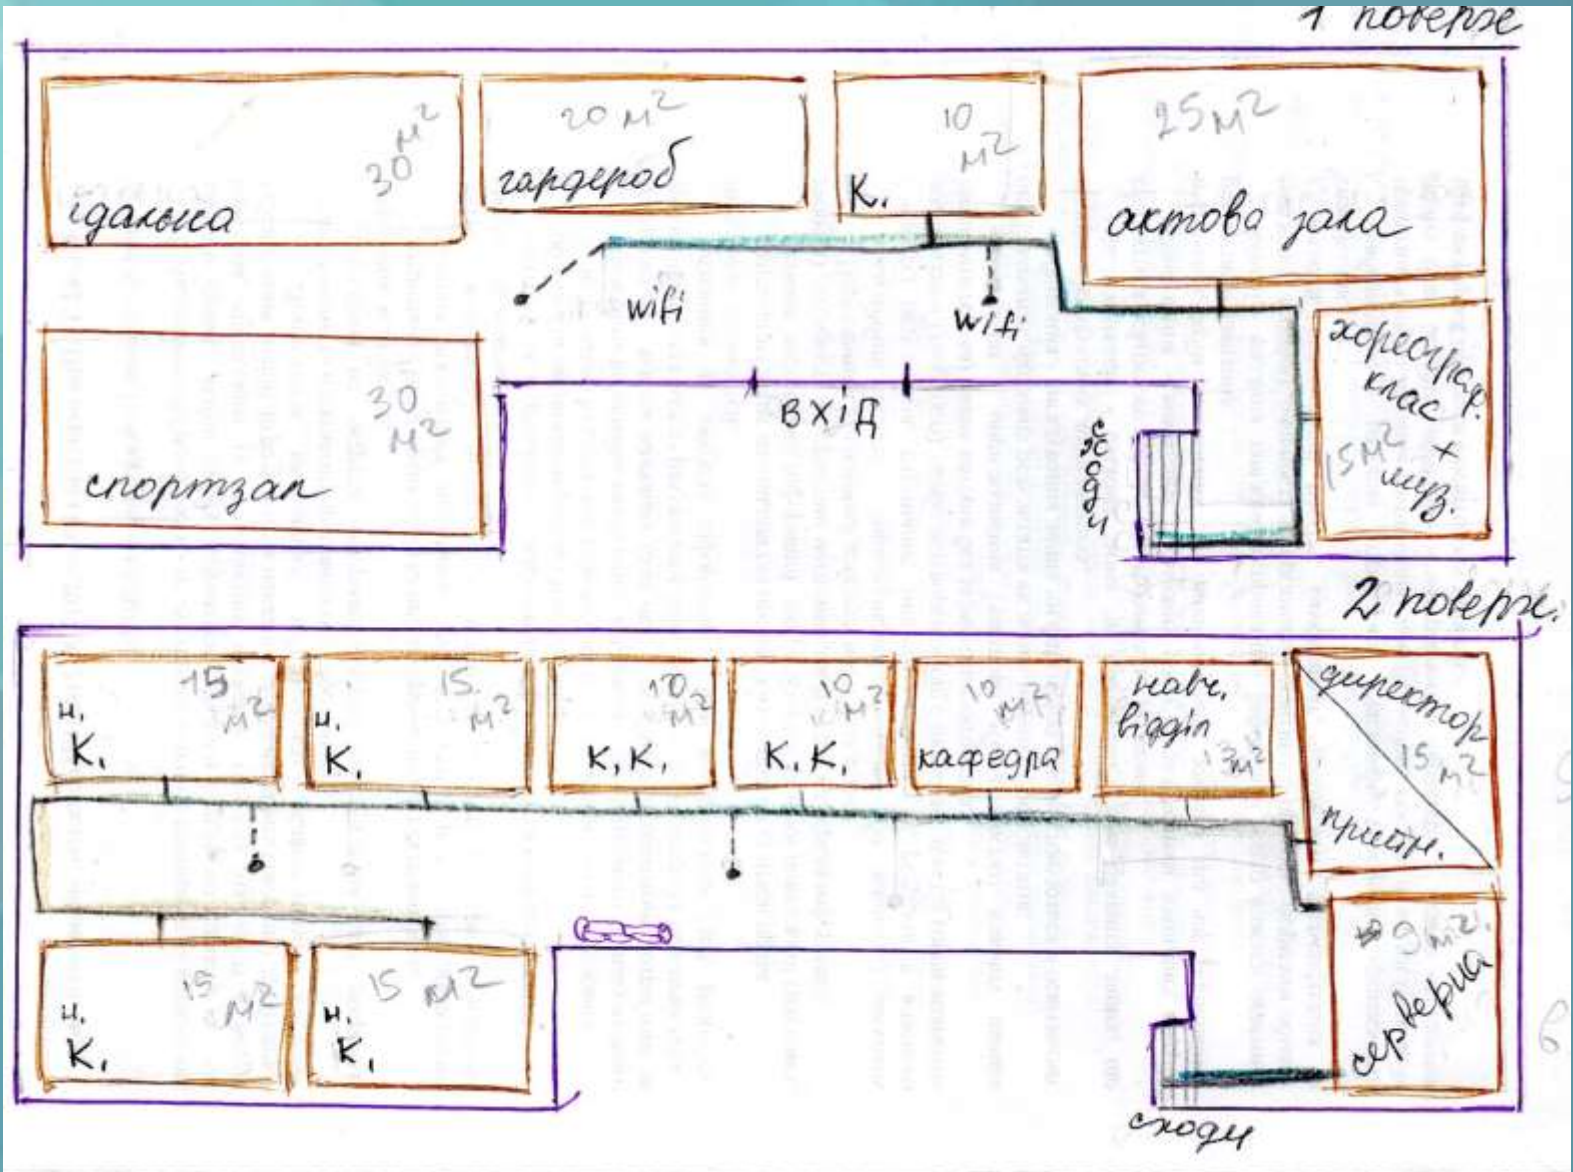 1 поверх
30 м²
їдальна
20 м²
гардероб
10 м²
К.
25 м²
актова зала
wifi
wifi
30 м²
спортзал
ВХІД
сходи
хореограф.
клас
+
муз.
15 м²
2 поверх.
15 м²
н.
К.
15 м²
н.
К.
10 м²
К. К.
10 м²
К. К.
10 м²
кафедра
навч.
відділ
13 м²
директор
15 м²
прийм.
15 м²
н.
К.
15 м²
н.
К.
9 м².
серверна
сходи